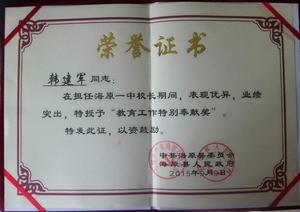 荣誉证书
韩建军 同志：
在担任海原一中校长期间，表现优异，业绩
突出，特授予“教育工作特别奉献奖”。
特发此证，以资鼓励。
中共海原县委员会
海原县人民政府
2015年9月9日